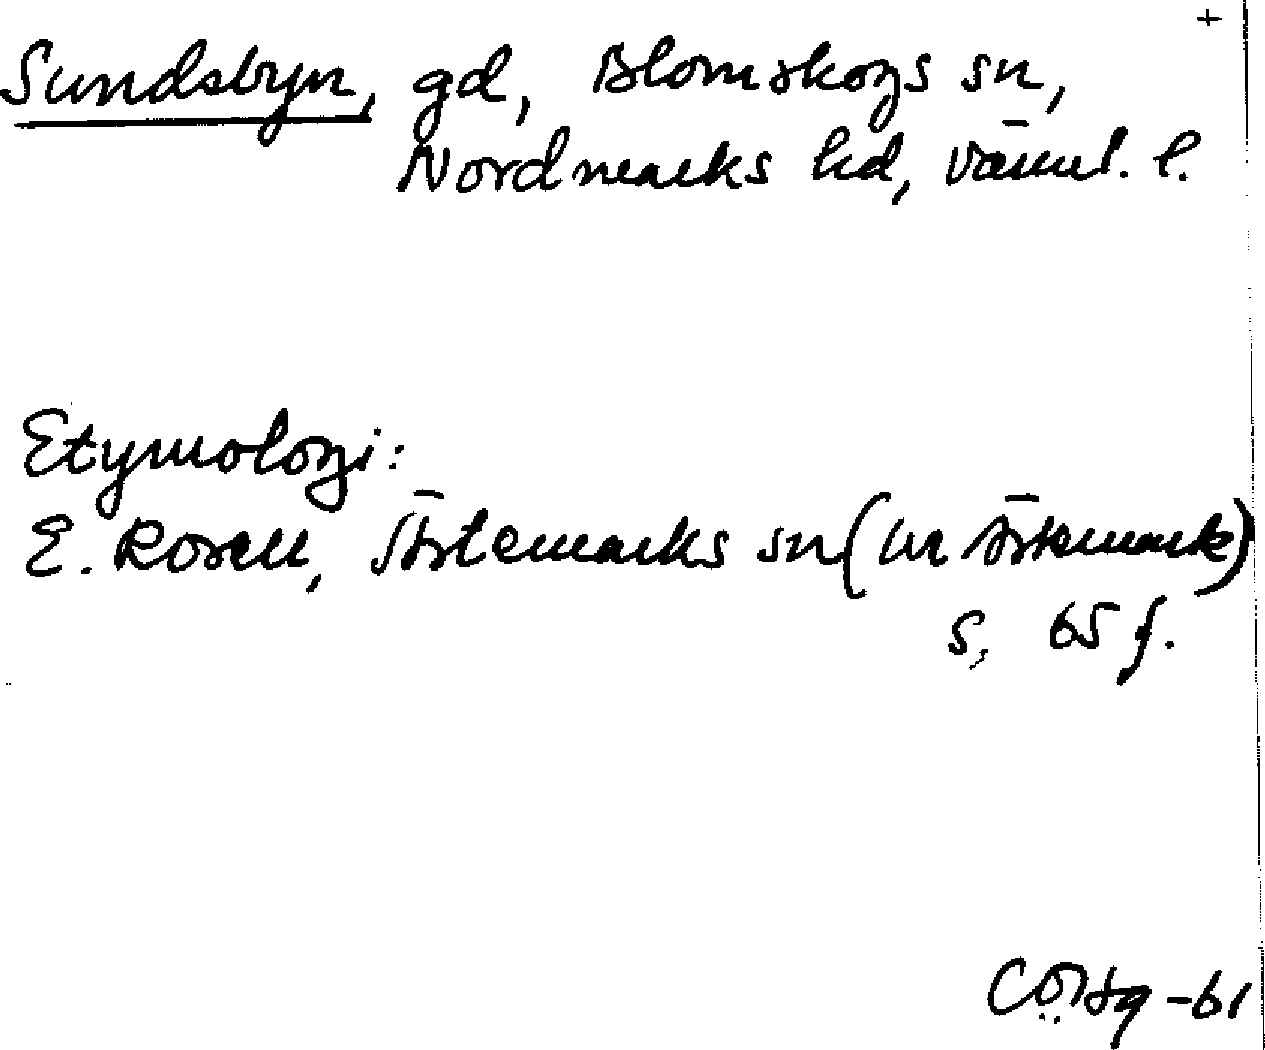 +
Sundsbyn, gd, Blomskogs sn,
Nordmarks hd, Värml. l.
Etymologi:
E. Rosell, Ärtemarks sn (ur Ärtemark)
s, 65 f.
-61